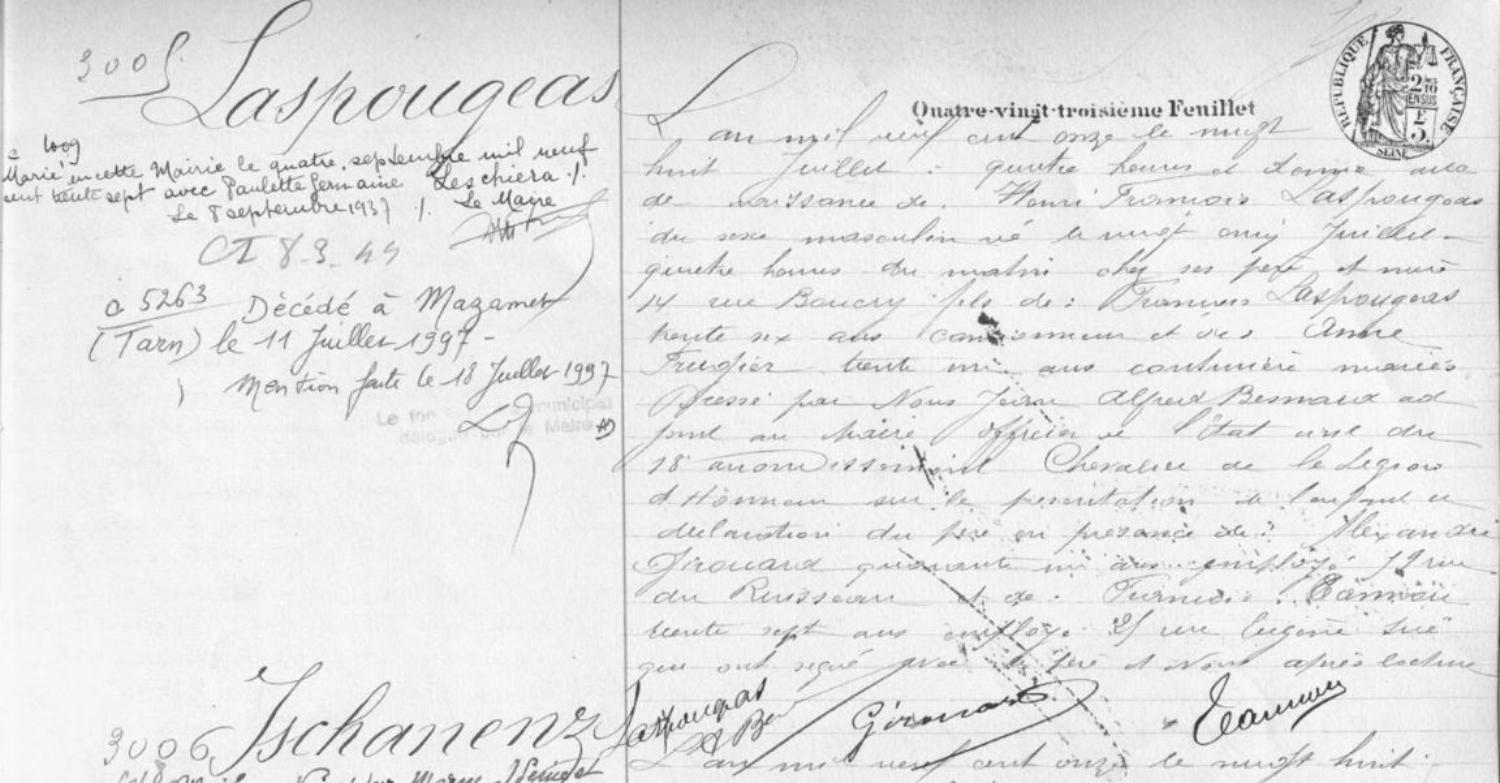 3005
Laspougeas
c 1009
Marié en cette Mairie le quatre septembre mil neuf
cent trente sept avec Paulette Germaine Leschiera ./.
Le 8 septembre 1937 ./. Le Maire
CI 8.3.44
c 5263 Décédé à Mazamet
(Tarn) le 11 Juillet 1997 -
Mention faite le 18 Juillet 1997
Le fon municipal
délégué par le Maire
3006 Tschanenz
Quatre-vingt-troisième Feuillet
RÉPUBLIQUE FRANÇAISE
2/10
EN SUS
SEINE
L'an mil neuf cent onze le vingt
huit Juillet à quatre heures et demie acte
de naissance de Henri François Laspougeas
du sexe masculin né le vingt cinq Juillet
quatre heures du matin chez ses père et mère
14 rue Baudry fils de : François Laspougeas
trente six ans camionneur et de : Anne
Frugier trente un ans couturière mariés
Dressé par Nous Alfred Besnard ad
joint au Maire officier de l'État civil du
18e arrondissement Chevalier de la Légion
d'Honneur sur la présentation de l'enfant et
déclaration du père en présence de : Alexandre
Girouard quarante un ans employé 79 rue
du Ruisseau et de :
trente sept ans employé 25 rue Eugène Sue
qui ont signé avec le père et Nous après lecture
Laspougeas Girouard
L'an mil neuf cent onze le vingt huit